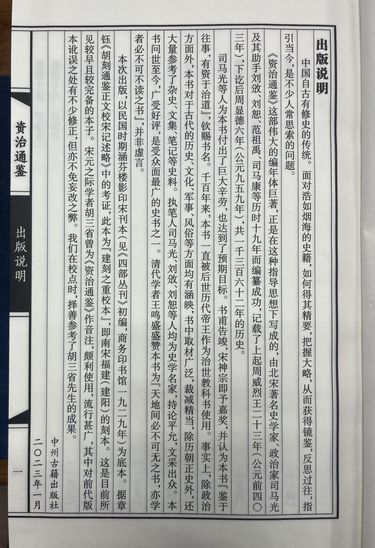 出版说明
中国自古有修史的传统。面对浩如烟海的史籍，如何得其精要，把握大略，从而获得镜鉴，反思过往，指
引当今，是不少人常思索的问题。
《资治通鉴》这部伟大的编年体巨著，正是在这种指导思想下写成的，由北宋著名史学家、政治家司马光
及其助手刘攽、刘恕、范祖禹、司马康等历时十九年而编纂成功，记载了上起周威烈王二十三年（公元前四〇
三年），下讫后周显德六年（公元九五九年），共一千三百六十二年的历史。
司马光等人为本书付出了巨大辛劳，也达到了预期目标。书甫告竣，宋神宗即予嘉奖，并认为本书『鉴于
往事，有资于治道』，钦赐书名。千百年来，本书一直被后世历代帝王作为治世教科书使用。事实上，除政治
方面外，本书对于古代的历史、文化、军事、风俗等方面均有涵映，书中取材广泛，裁减精当，除历朝正史外，还
大量参考了杂史、文集、笔记等史料。执笔人司马光、刘攽、刘恕等人均为史学名家，持论平允，文采出众。本
书问世至今，广受好评，是受众面最广的史书之一。清代学者王鸣盛盛赞本书为『天地间必不可无之书，亦学
者必不可不读之书』，并非虚言。
本次出版，以民国时期涵芬楼影印宋刊本（见《四部丛刊》初编，商务印书馆一九二九年）为底本。据章
钰《胡刻通鉴正文校宋记述略》中的考证，此本为『建刻之重校本』，即南宋福建（建阳）的刻本。这是目前所
见较早且较完备的本子。宋元之际学者胡三省曾为《资治通鉴》作音注，颇利使用，流行甚广，其中对前代版
本讹误之处有不少修正，但亦不免妄改之弊。我们在校点时，择善参考了胡三省先生的成果。
中州古籍出版社
二〇二三年一月
资治通鉴
出版说明
一